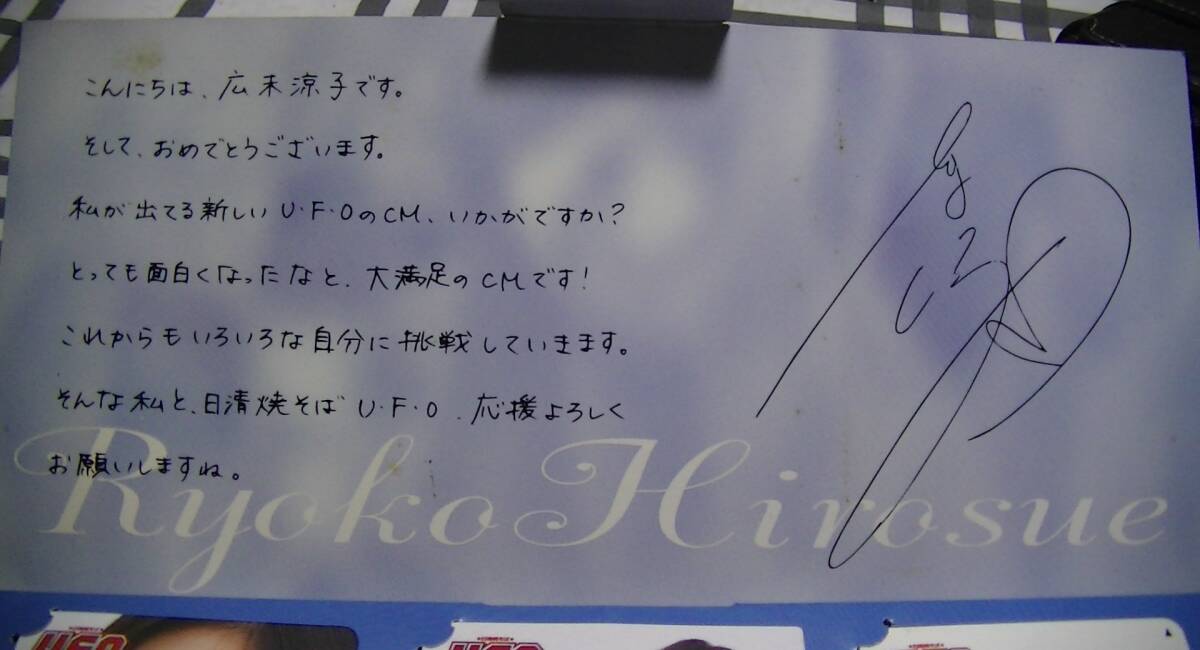 こんにちは、広末涼子です。
そして、おめでとうございます。
私が出てる新しいU・F・OのCM、いかがですか?
とっても面白くなったなと、大満足のCMです!
これからもいろいろな自分に挑戦していきます。
そんな私と、日清焼そばU・F・O、応援よろしく
お願いしますね。
Ryoko Hirosue
UFO
UFO